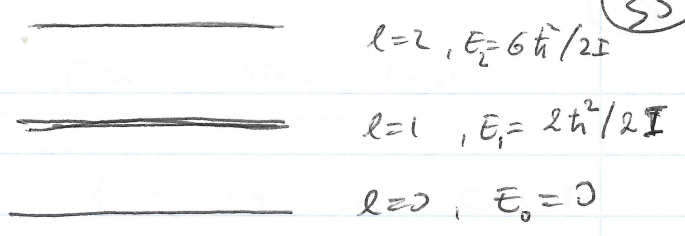 l=2, E₂=6ħ²/2I
l=1, E₁= 2ħ²/2I
l=0, E₀=0